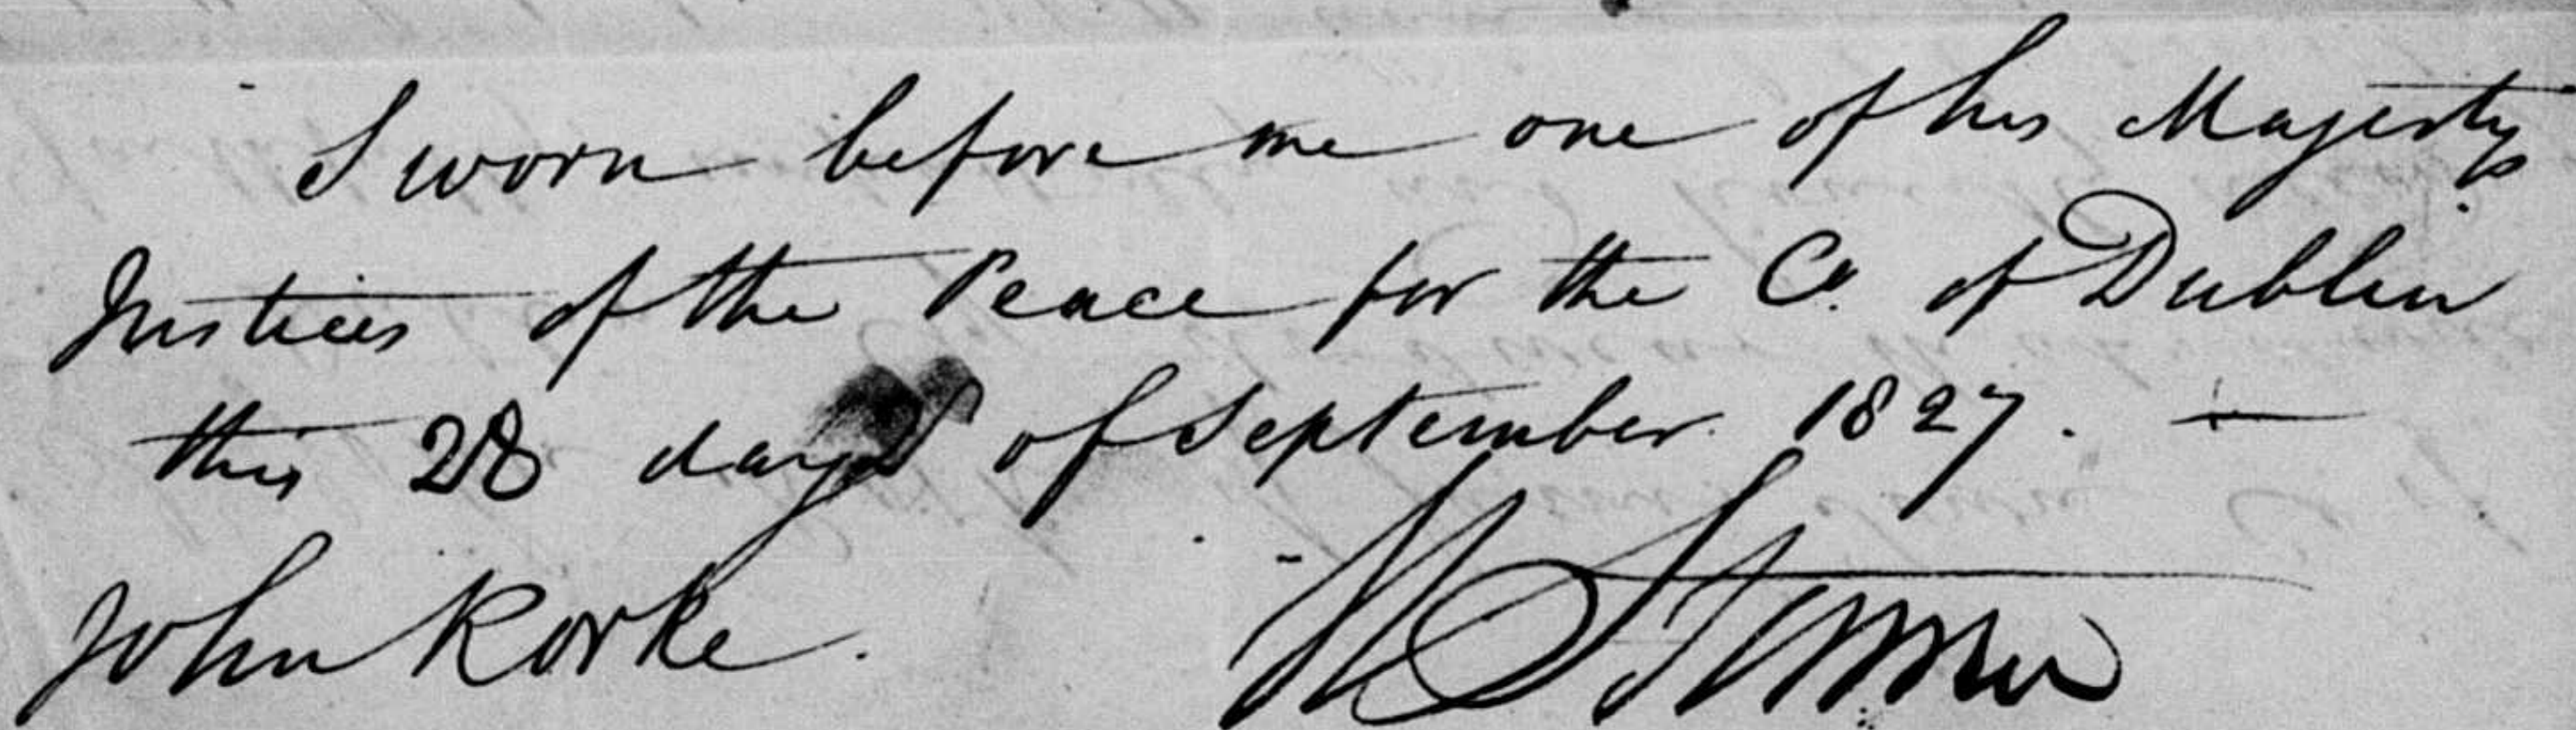 Sworn before me one of his Majestys
Justices of the Peace for the Co. of Dublin
this 28 day of September 1827. —
John Rorke.